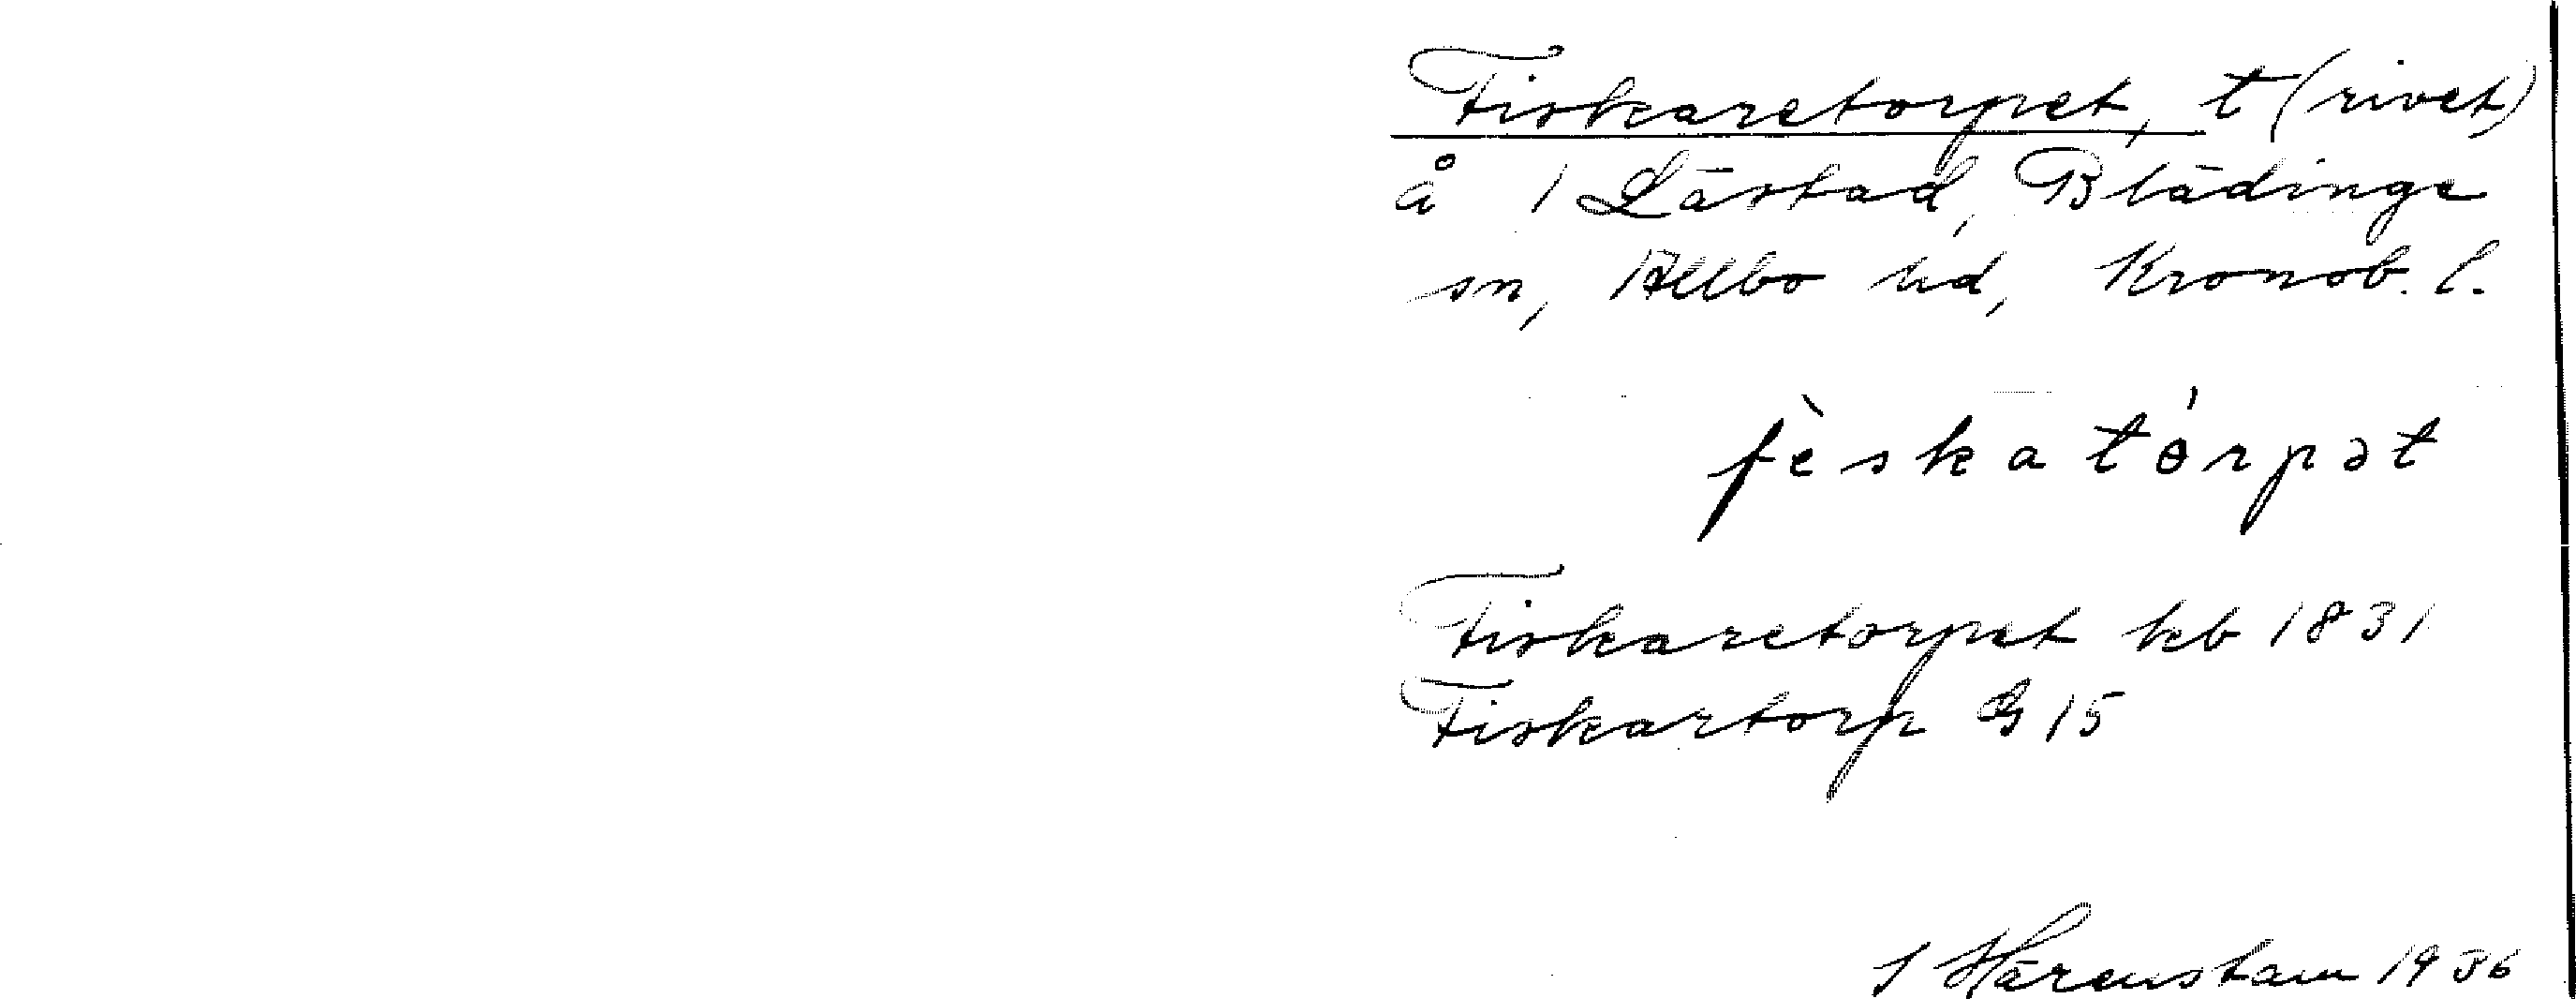 Fiskaretorpet, t (rivet)
å 1 Lästad, Blädinge
sn, Allbo hd, Kronob. l.
fèskatɵ́rpət
Fiskaretorpet kb 1831
Fiskartorp G 15
S Härenstam 1936